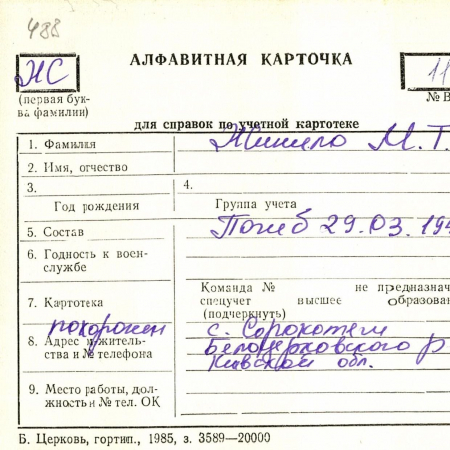 488
АЛФАВИТНАЯ КАРТОЧКА
Ж
11
(первая бук-
ва фамилии)
№ В
для справок по учетной картотеке
1. Фамилия М. Т.
2. Имя, отчество
3. 4.
Год рождения Группа учета
5. Состав Погиб 29.03.194
6. Годность к воен-
службе
Команда № не предназнач
7. Картотека спецучет высшее образова
(подчеркнуть)
похоронен с. Сорокотяги
8. Адрес жительс-
тва и № телефона Белоцерковского р
Киевской обл.
9. Место работы, дол-
жность и № тел. ОК
Б. Церковь, гортип., 1985, з. 3589—20000